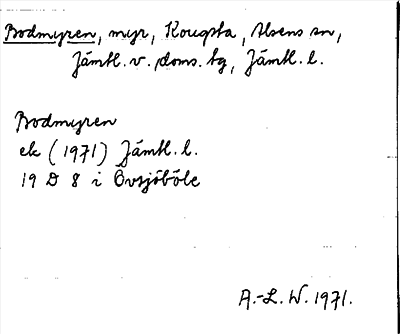 Bodmyren, myr, Kougsta, Alsens sn,
Jämtl. v. doms. tg, Jämtl. l.
Bodmyren
ek (1971) Jämtl. l.
19 D 8 i Övsjöböle
A.-L. W. 1971.